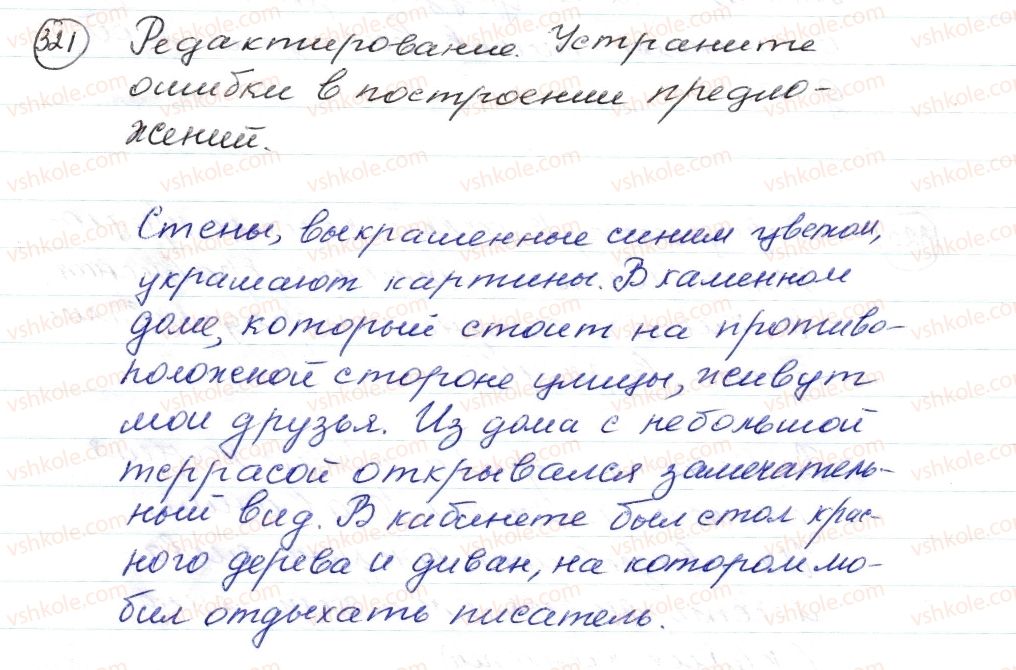 321 Редактирование. Устраните
ошибки в построении предло-
жений.
Стены, выкрашенные синим цветом,
украшают картины. В каменном
доме, который стоит на противо-
положной стороне улицы, живут
мои друзья. Из дома с небольшой
террасой открывался замечатель-
ный вид. В кабинете был стол крас-
ного дерева и диван, на котором лю-
бил отдыхать писатель.
vshkole.com